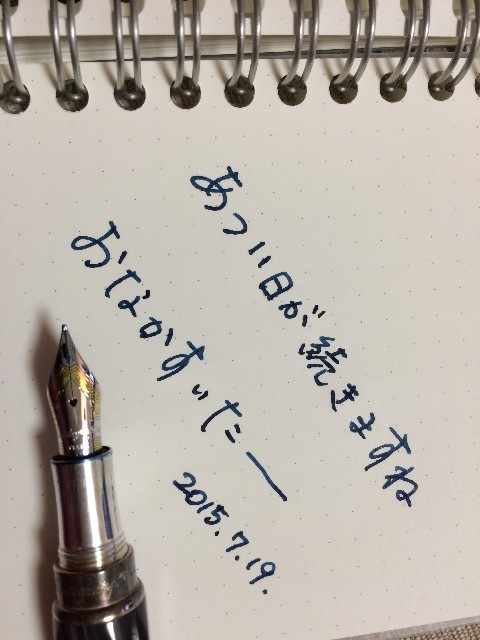 あつい日が続きますね
おなかすいたー
2015.7.19.